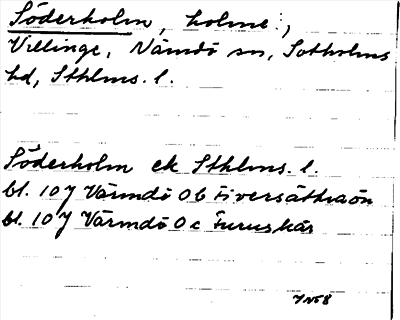 Söderholm, holme,
Villinge, Nämdö sn, Sotholms
hd, Sthlms. l.
Söderholm ek Sthlms. l.
bl. 107 Värmdö 0b Tiversättraön
bl. 107 Värmdö 0c Furuskär